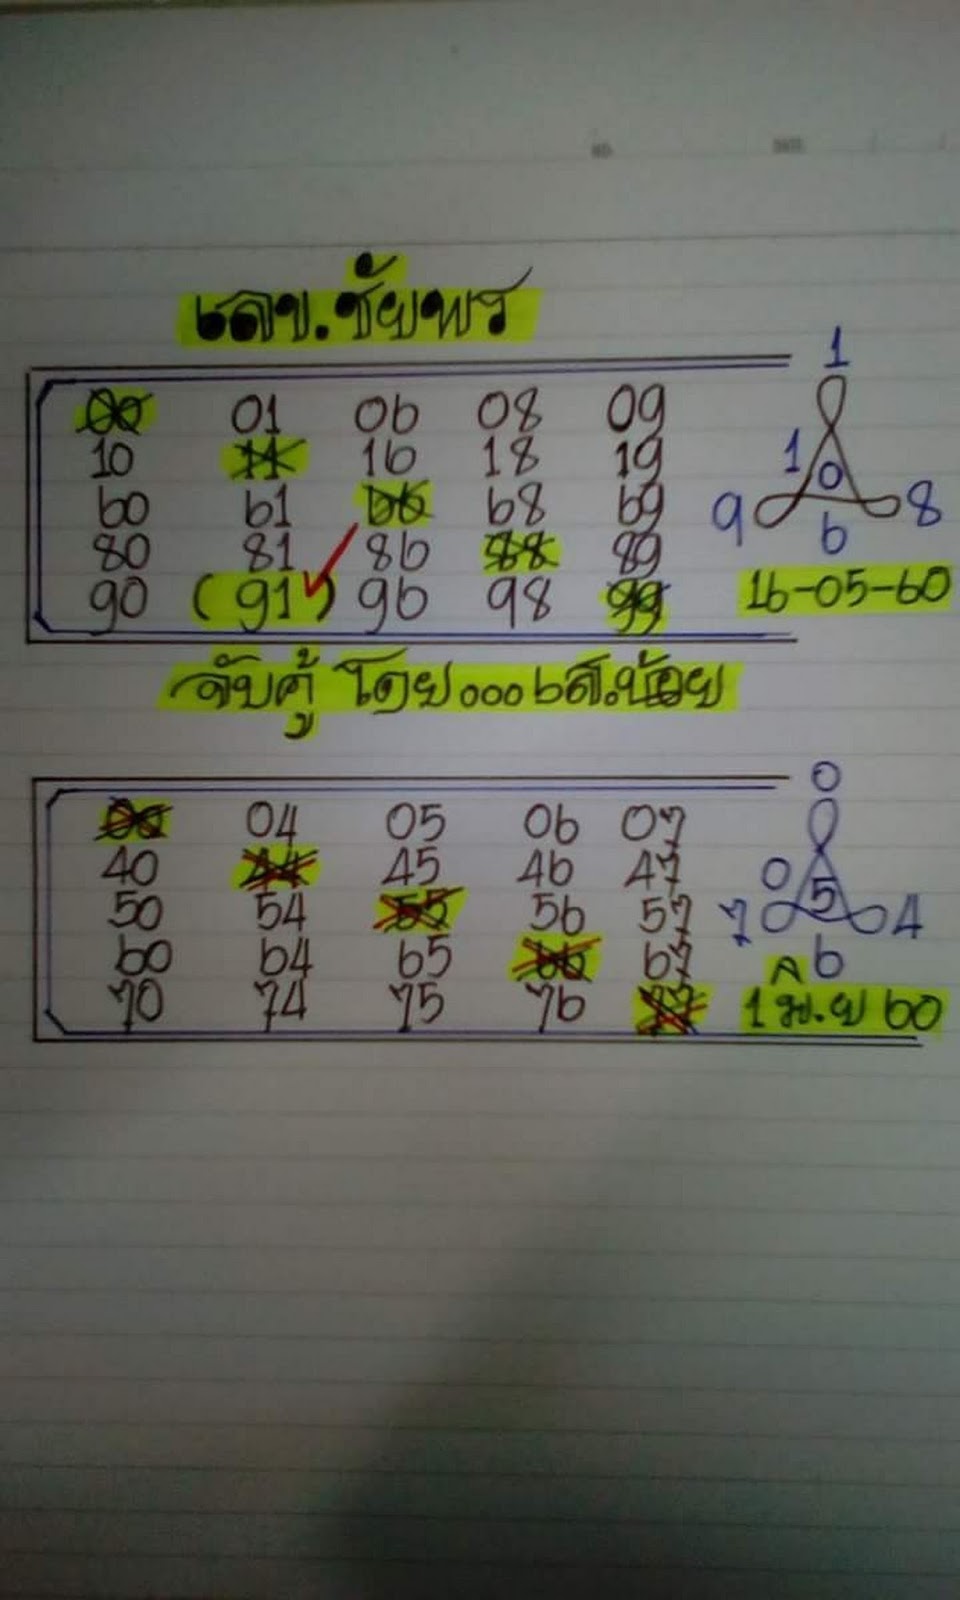 เลข.ชัยพร
1
00 01 06 08 09
10 11 16 18 19
1 0
60 61 66 68 69
9 6 8
80 81 86 88 89
90 (91) 96 98 99
16-05-60
จับคู่ โดย...เส.น้อย
0
00 04 05 06 07
40 44 45 46 47
0 5
50 54 55 56 57
7 4
60 64 65 66 67
A 6
70 74 75 76 77
1 มิ.ย 60